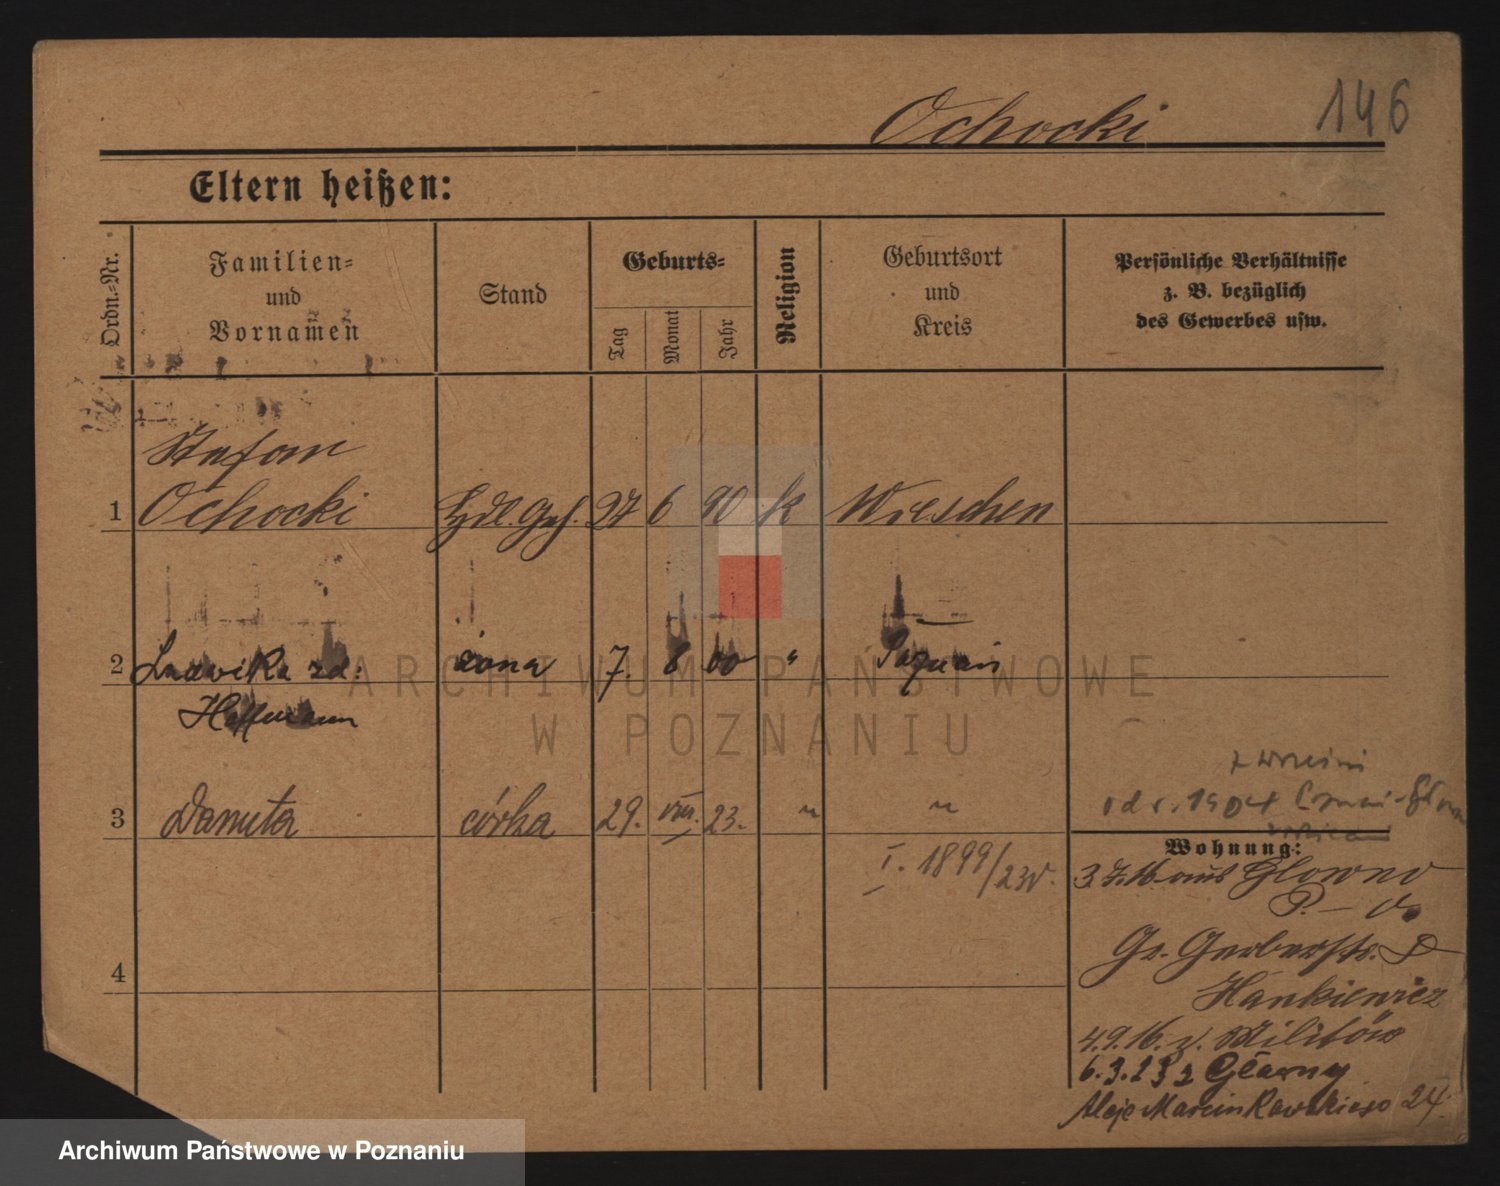 146
Ochocki
Eltern heißen:
Ordn.-Nr.
Familien-
und
Vornamen
Stand
Geburts-
Tag
Monat
Jahr
Religion
Geburtsort
und
Kreis
Persönliche Verhältnisse
z. B. bezüglich
des Gewerbes usw.
Stefan
1 Ochocki Hdl. Geh. 27 6 90 k Wreschen
2 Ludwika zd: żona 7. 8 00 " Poznań
Hoffmann
3 Danuta córka 29. VIII. 23. " "
od r. 1904
Wohnung:
I. 1899/23
3.7.16 aus Glowno
P. –
Gr. Gerberstr. 8
Hankiewicz
4.9.16. z. Militär
6.3.23 z Czarny
Aleje Marcinkowskiego 24.
4
ARCHIWUM PAŃSTWOWE
W POZNANIU
Archiwum Państwowe w Poznaniu